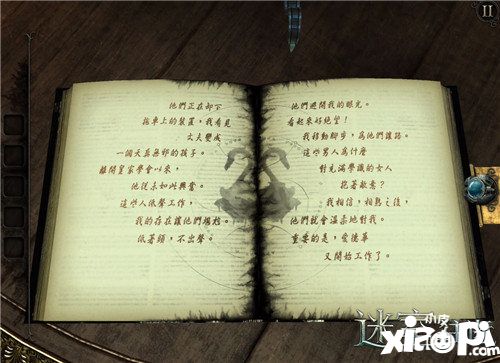 他們正在卸下
拖車上的裝置。我看見
丈夫變成
一個天真無邪的孩子。
離開皇家學會以來，
他從未如此興奮。
這些人依聲工作，
我的存在讓他們尷尬。
低著頭，不出聲。
他們避開我的眼光。
看起來好絕望！
我移動腳步，為他們讓路。
這些男人為什麼
對充滿學識的女人
抱著敵意？
我相信，相熟之後，
他們就會溫柔地對我。
重要的是，愛德華
又開始工作了。
迷室
小皮
XiaoPi.com